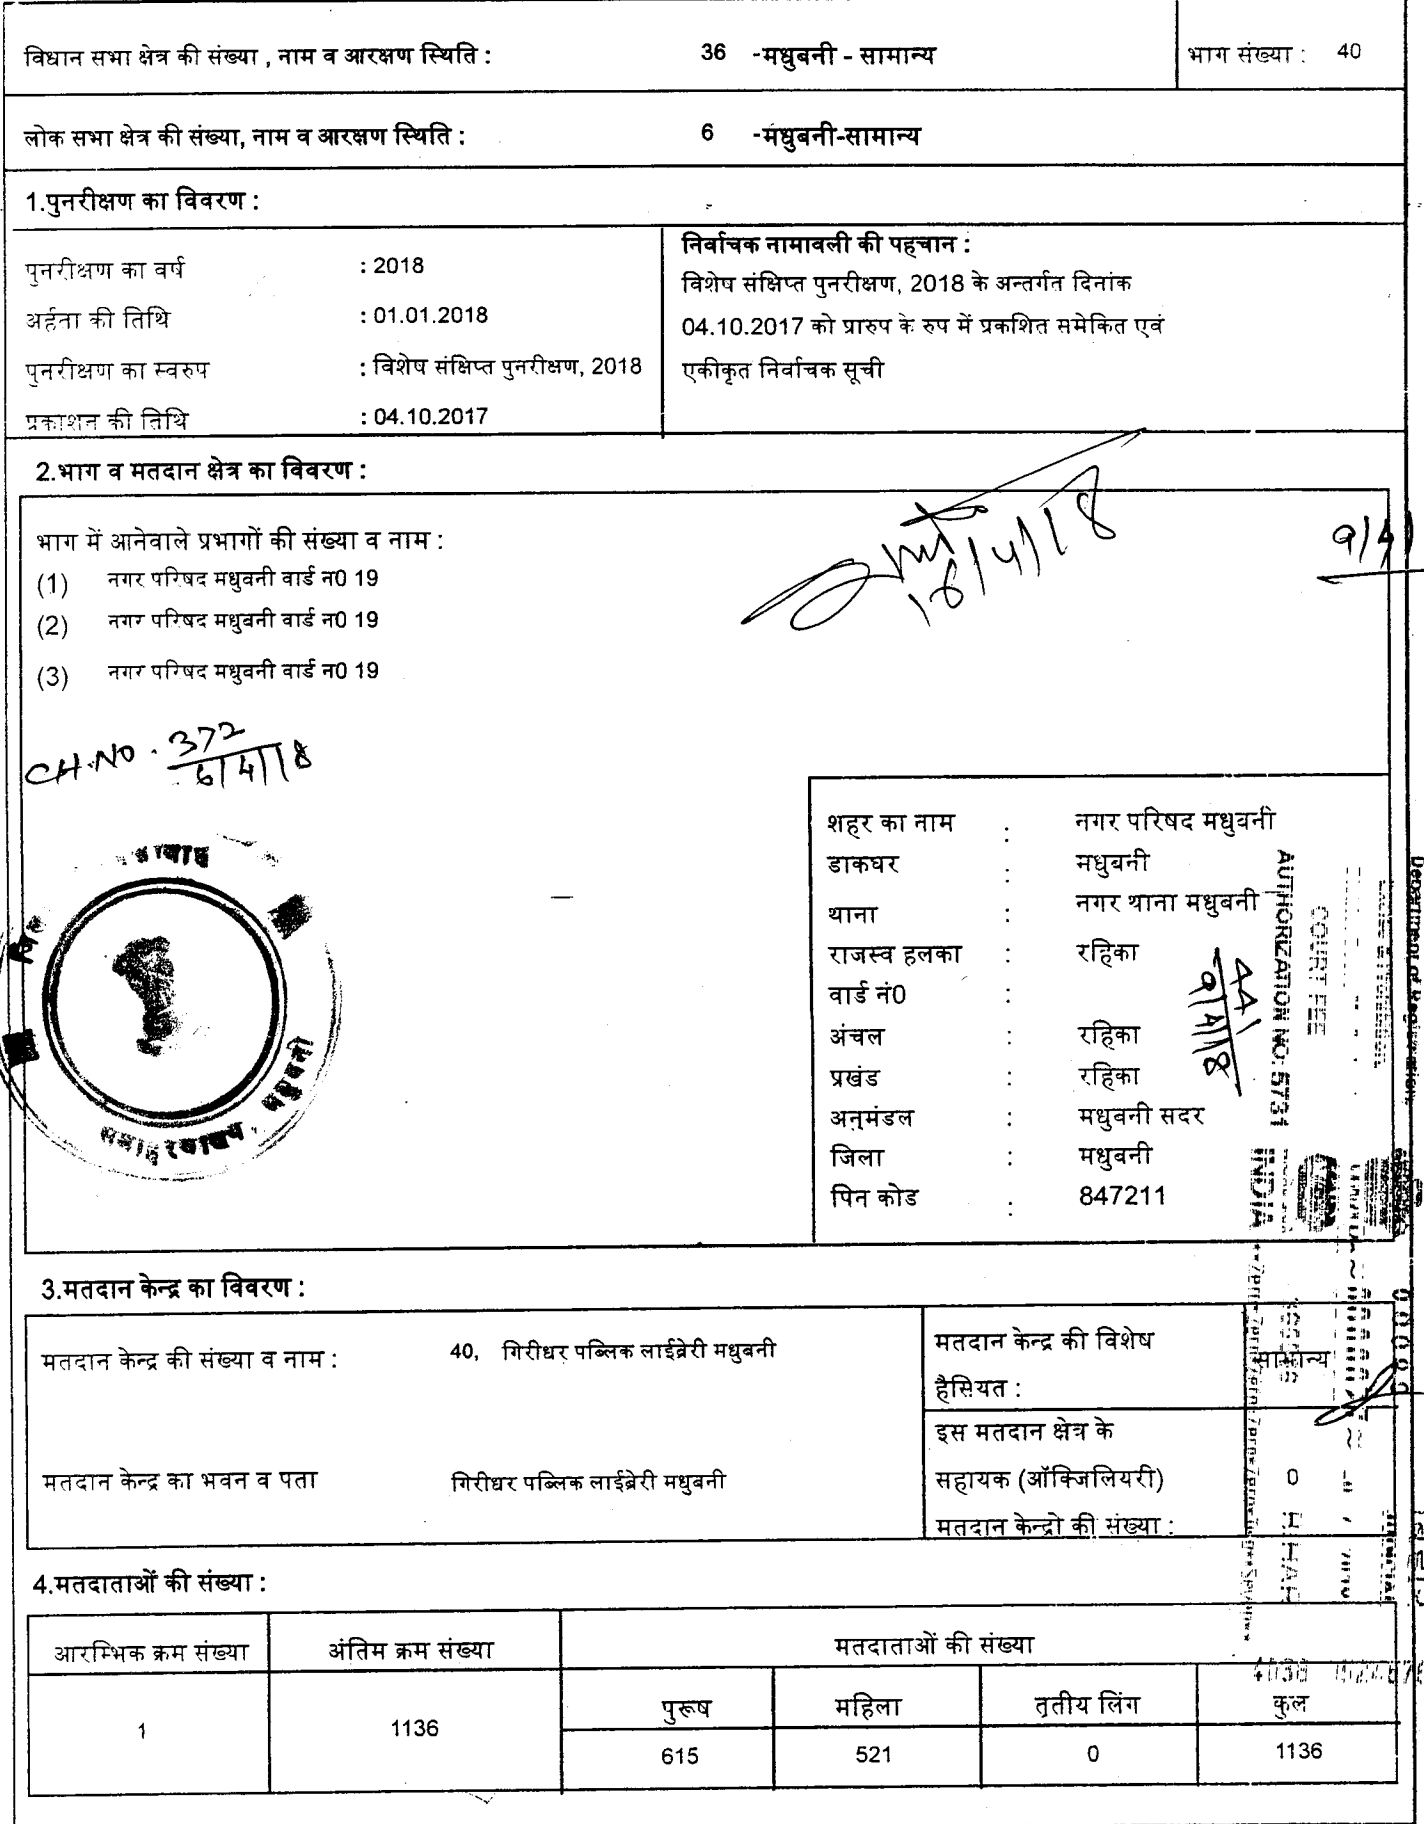 विधान सभा क्षेत्र की संख्या , नाम व आरक्षण स्थिति : 36 -मधुबनी - सामान्य भाग संख्या : 40
लोक सभा क्षेत्र की संख्या, नाम व आरक्षण स्थिति : 6 -मधुबनी-सामान्य
1.पुनरीक्षण का विवरण :
पुनरीक्षण का वर्ष : 2018
अर्हता की तिथि : 01.01.2018
पुनरीक्षण का स्वरुप : विशेष संक्षिप्त पुनरीक्षण, 2018
प्रकाशन की तिथि : 04.10.2017
निर्वाचक नामावली की पहचान :
विशेष संक्षिप्त पुनरीक्षण, 2018 के अन्तर्गत दिनांक
04.10.2017 को प्रारुप के रुप में प्रकशित समेकित एवं
एकीकृत निर्वाचक सूची
2.भाग व मतदान क्षेत्र का विवरण :
भाग में आनेवाले प्रभागों की संख्या व नाम :
(1) नगर परिषद मधुवनी वार्ड न0 19
(2) नगर परिषद मधुवनी वार्ड न0 19
(3) नगर परिषद मधुवनी वार्ड न0 19
CH.NO. 372
6/4/18
शहर का नाम : नगर परिषद मधुवनी
डाकघर : मधुबनी
थाना : नगर थाना मधुबनी
राजस्व हलका : रहिका
वार्ड नं0 :
अंचल : रहिका
प्रखंड : रहिका
अनुमंडल : मधुबनी सदर
जिला : मधुबनी
पिन कोड : 847211
441
9/4/18
COURT FEE
AUTHORIZATION NO: 5731
INDIA
समाहरणालय, मधुबनी
3.मतदान केन्द्र का विवरण :
मतदान केन्द्र की संख्या व नाम : 40, गिरीधर पब्लिक लाईब्रेरी मधुबनी
मतदान केन्द्र का भवन व पता गिरीधर पब्लिक लाईब्रेरी मधुबनी
मतदान केन्द्र की विशेष
हैसियत : सामान्य
इस मतदान क्षेत्र के
सहायक (ऑक्जिलियरी) 0
मतदान केन्द्रो की संख्या :
4.मतदाताओं की संख्या :
आरम्भिक क्रम संख्या अंतिम क्रम संख्या मतदाताओं की संख्या
पुरूष महिला तृतीय लिंग कुल
1 1136 615 521 0 1136